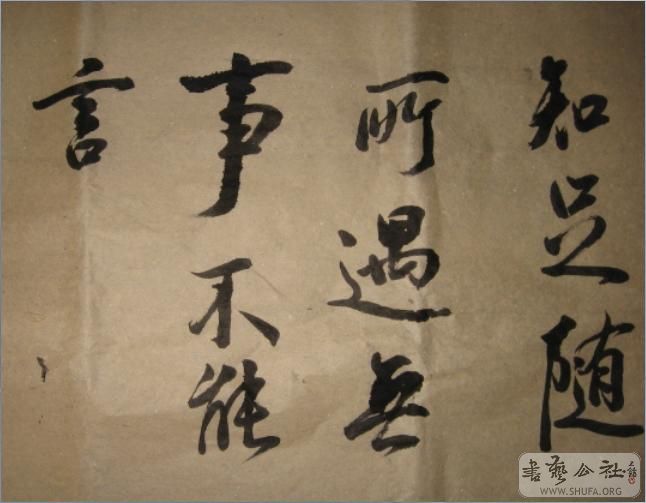 知足随
所遇無
事不能
言
書藝公社
WWW.SHUFA.ORG